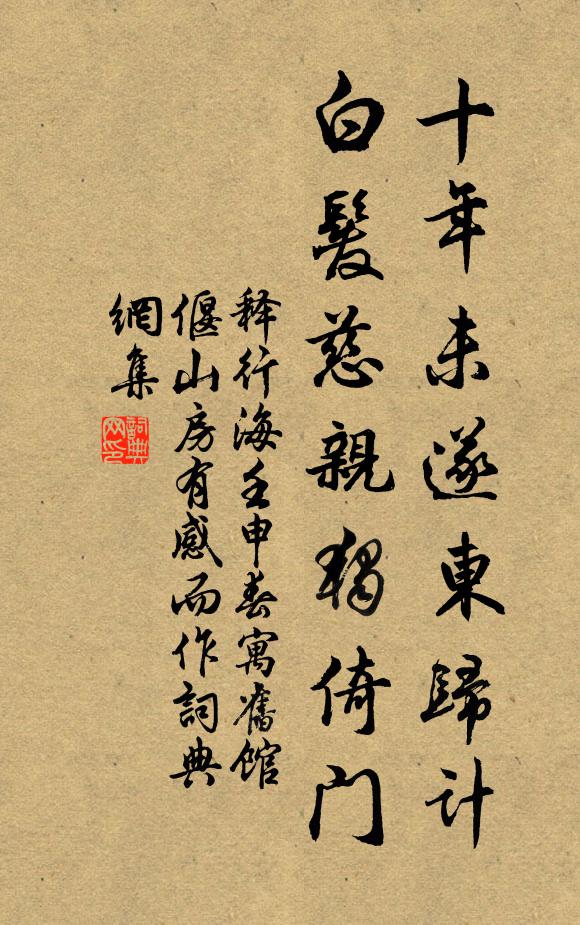 十年未遂東歸計
白髮慈親獨倚門
释行海壬申春寓舊館
偃山房有感而作詞典
網集
詞典网印